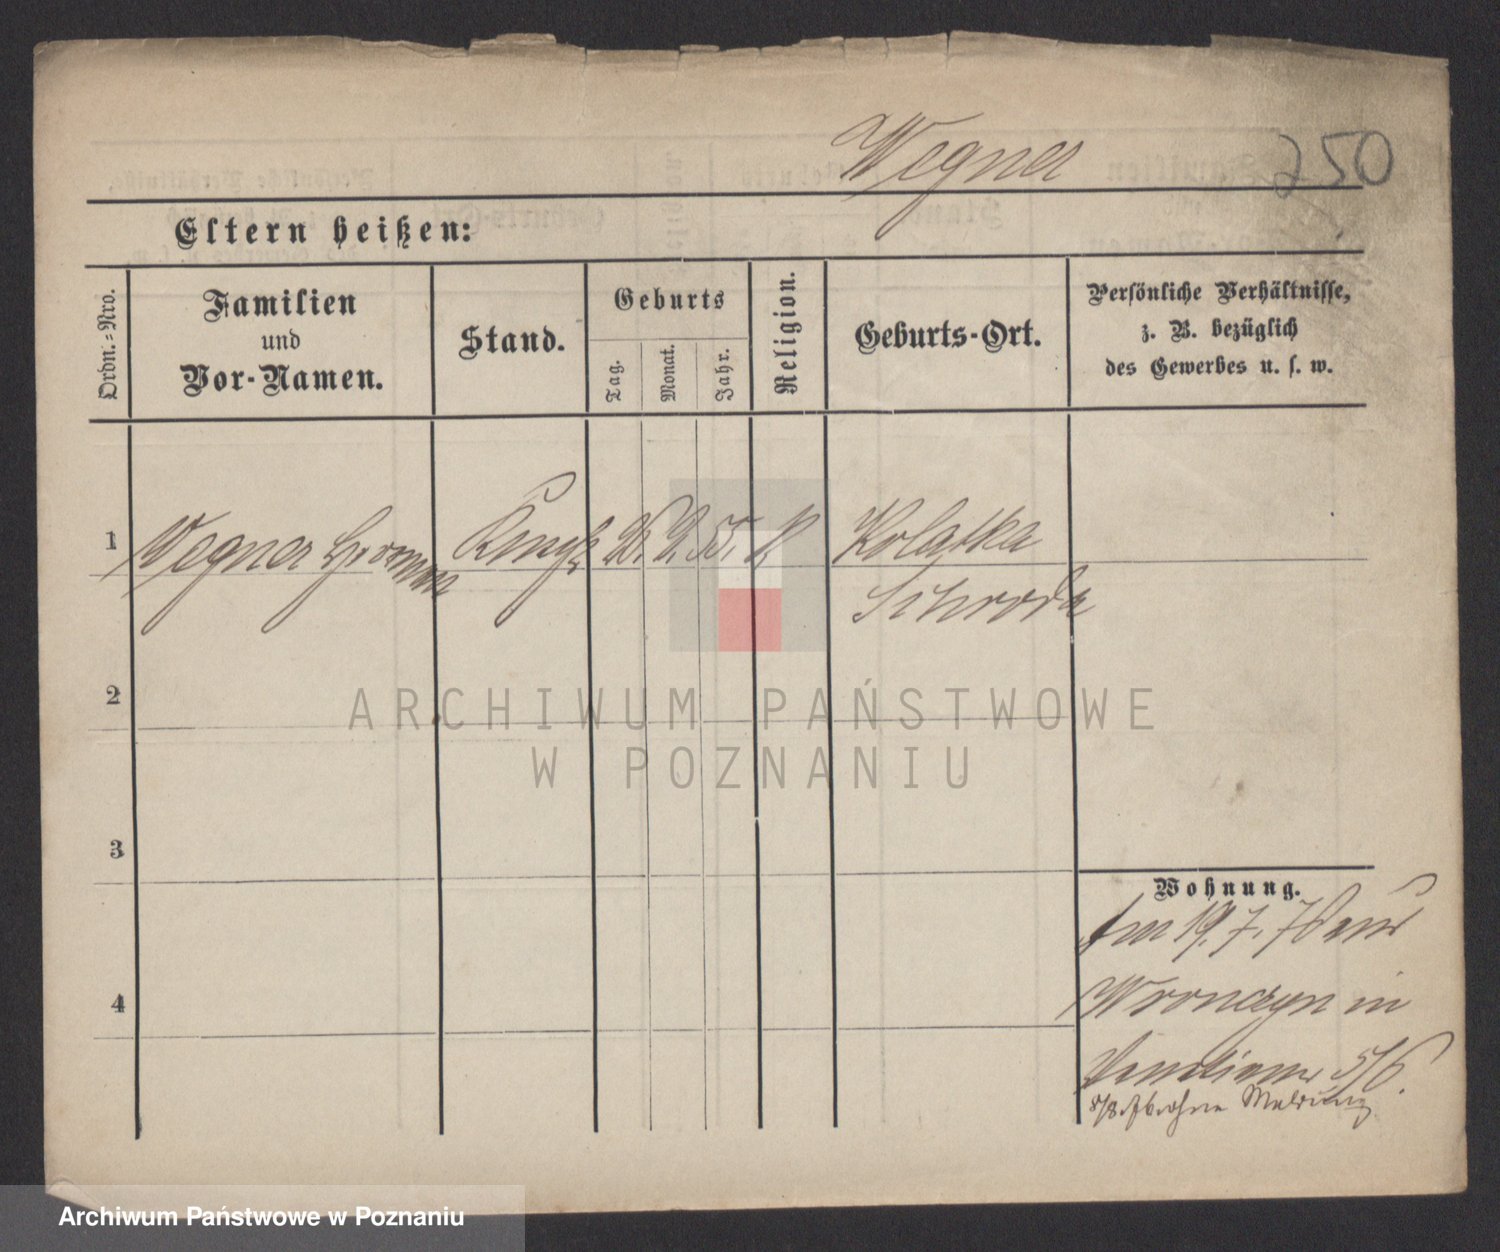 Wegner
250
Eltern heißen:
Ordn.=Nro.
Familien
und
Vor-Namen.
Stand.
Geburts
Tag.
Monat.
Jahr.
Religion.
Geburts-Ort.
Persönliche Verhältnisse,
z. B. bezüglich
des Gewerbes u. s. w.
1
Wegner Herrman
9. 55.
Kolatka
Schroda
2
3
4
Wohnung.
19. 7. 76 aus
Wronczyn in
5/6.
ohne Meldung
ARCHIWUM PAŃSTWOWE
W POZNANIU
Archiwum Państwowe w Poznaniu